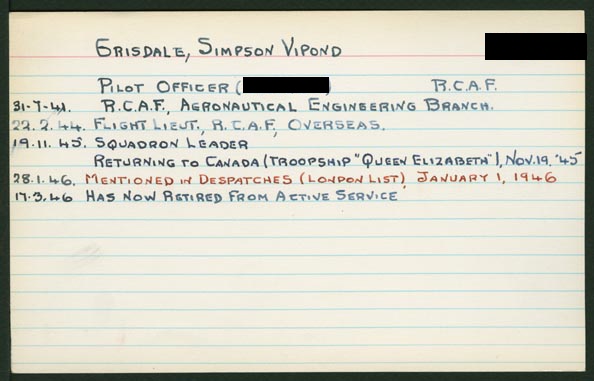 Grisdale, Simpson Vipond
Pilot Officer ( ) R.C.A.F.
31-7-41. R.C.A.F., Aeronautical Engineering Branch.
22.2.44. Flight Lieut., R.C.A.F., Overseas.
19.11.45. Squadron Leader
Returning to Canada (Troopship "Queen Elizabeth"), Nov. 19. '45
28.1.46. Mentioned in Despatches (London List), January 1, 1946
17.3.46 Has Now Retired From Active Service